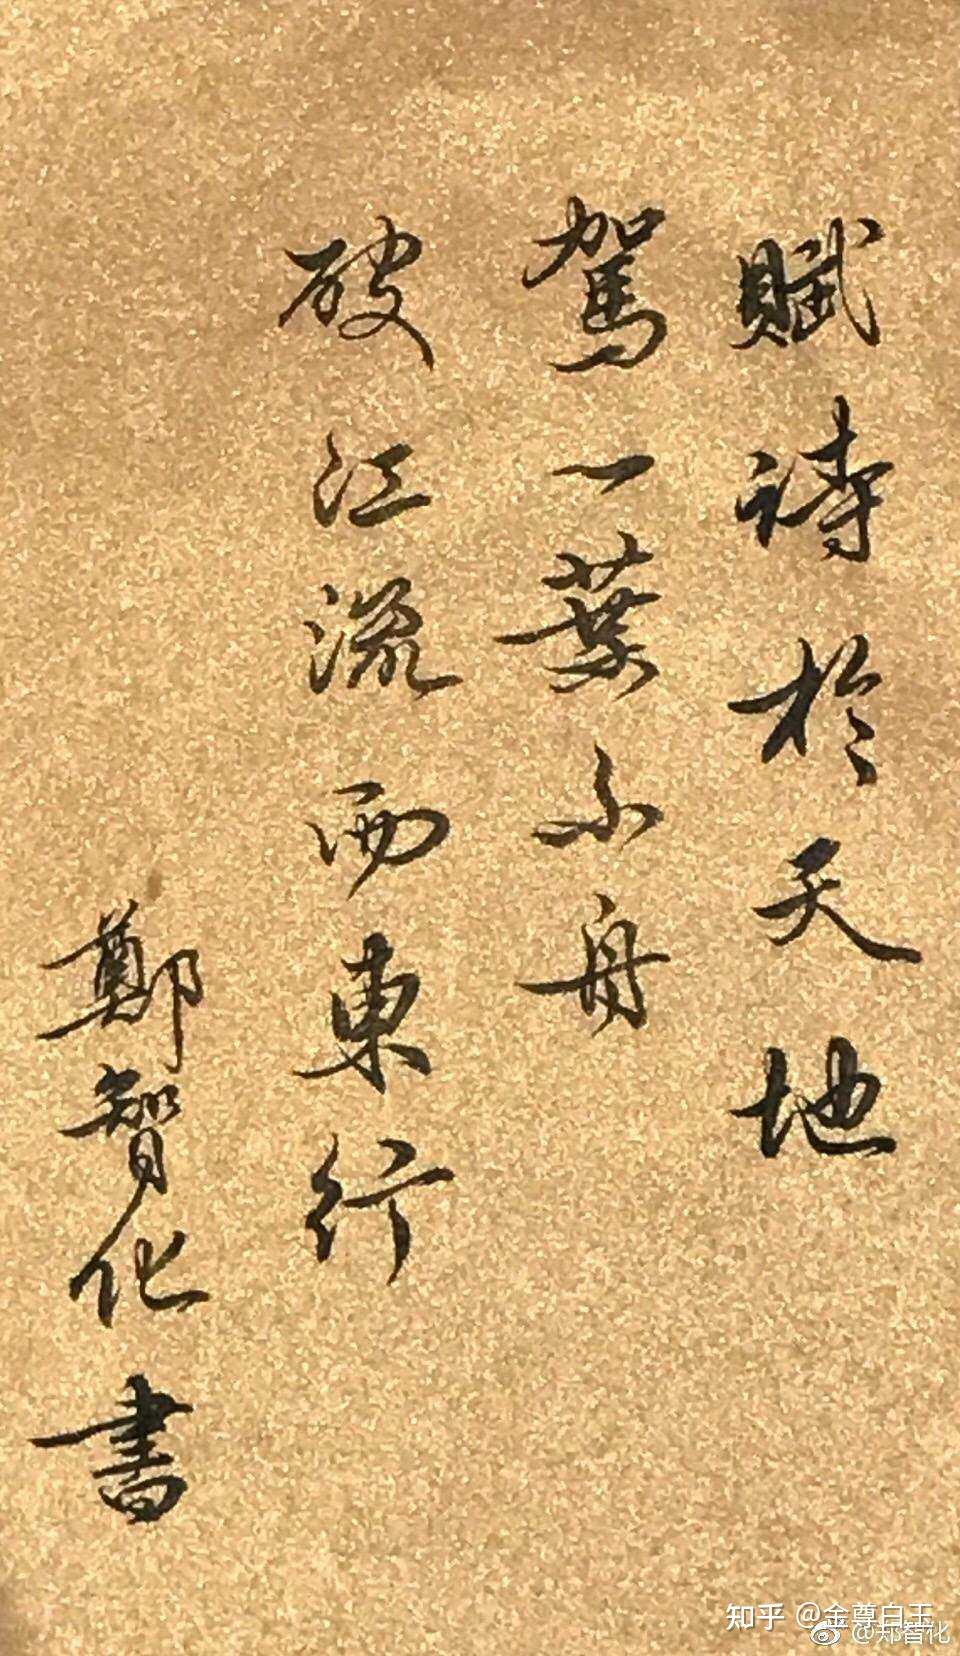 賦詩於天地
駕一葉小舟
破江流西東行
鄭智化書
知乎 @金尊白玉
@郑智化